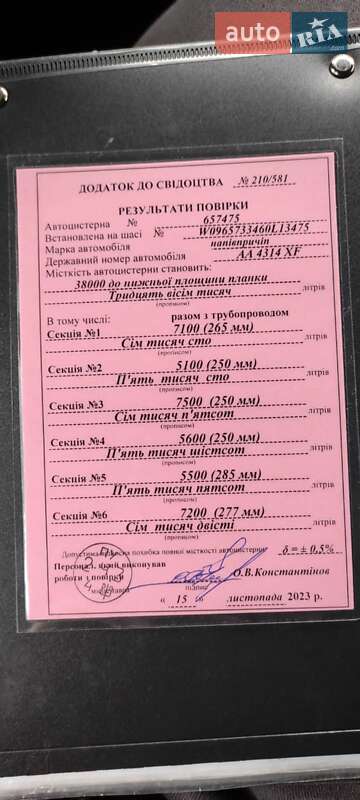 auto RIA.com
ДОДАТОК ДО СВІДОЦТВА № 210/581
РЕЗУЛЬТАТИ ПОВІРКИ
Автоцистерна № 657475
Встановлена на шасі № W0965733460L13475
Марка автомобіля напівпричіп
Державний номер автомобіля АА 4314 XF
Місткість автоцистерни становить:
38000 до нижньої площини планки
Тридцять вісім тисяч літрів
(прописом)
В тому числі: разом з трубопроводом
Секція №1 7100 (265 мм)
Сім тисяч сто літрів
(прописом)
Секція №2 5100 (250 мм)
П'ять тисяч сто літрів
(прописом)
Секція №3 7500 (250 мм)
Сім тисяч п'ятсот літрів
(прописом)
Секція №4 5600 (250 мм)
П'ять тисяч шістсот літрів
(прописом)
Секція №5 5500 (285 мм)
П'ять тисяч пятсот літрів
(прописом)
Секція №6 7200 (277 мм)
Сім тисяч двісті літрів
(прописом)
Допустима відносна похибка повної місткості автоцистерни δ = ± 0,5%
Персонал, який виконував
роботи з повірки О.В.Константінов
підпис
« 15 » листопада 2023 р.